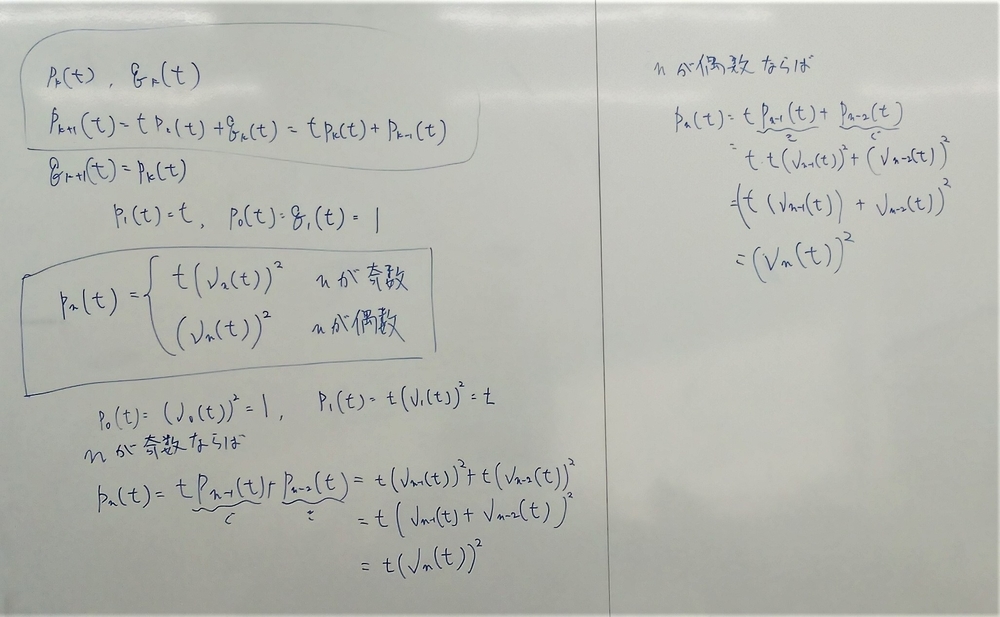 p_k(t), q_k(t)
p_{k+1}(t) = t p_k(t) + q_k(t) = t p_k(t) + p_{k-1}(t)
q_{k+1}(t) = p_k(t)
p_1(t) = t, p_0(t) = q_1(t) = 1
p_n(t) = { t(V_n(t))^2 nが奇数
(V_n(t))^2 nが偶数
p_0(t) = (V_0(t))^2 = 1, p_1(t) = t(V_1(t))^2 = t
nが奇数ならば
p_n(t) = t p_{n-1}(t) + p_{n-2}(t) = t(V_{n-1}(t))^2 + t(V_{n-2}(t))^2
= t(V_{n-1}(t) + V_{n-2}(t))^2
= t(V_n(t))^2
nが偶数ならば
p_n(t) = t p_{n-1}(t) + p_{n-2}(t)
= t·t(V_{n-1}(t))^2 + (V_{n-2}(t))^2
= (t(V_{n-1}(t)) + V_{n-2}(t))^2
= (V_n(t))^2